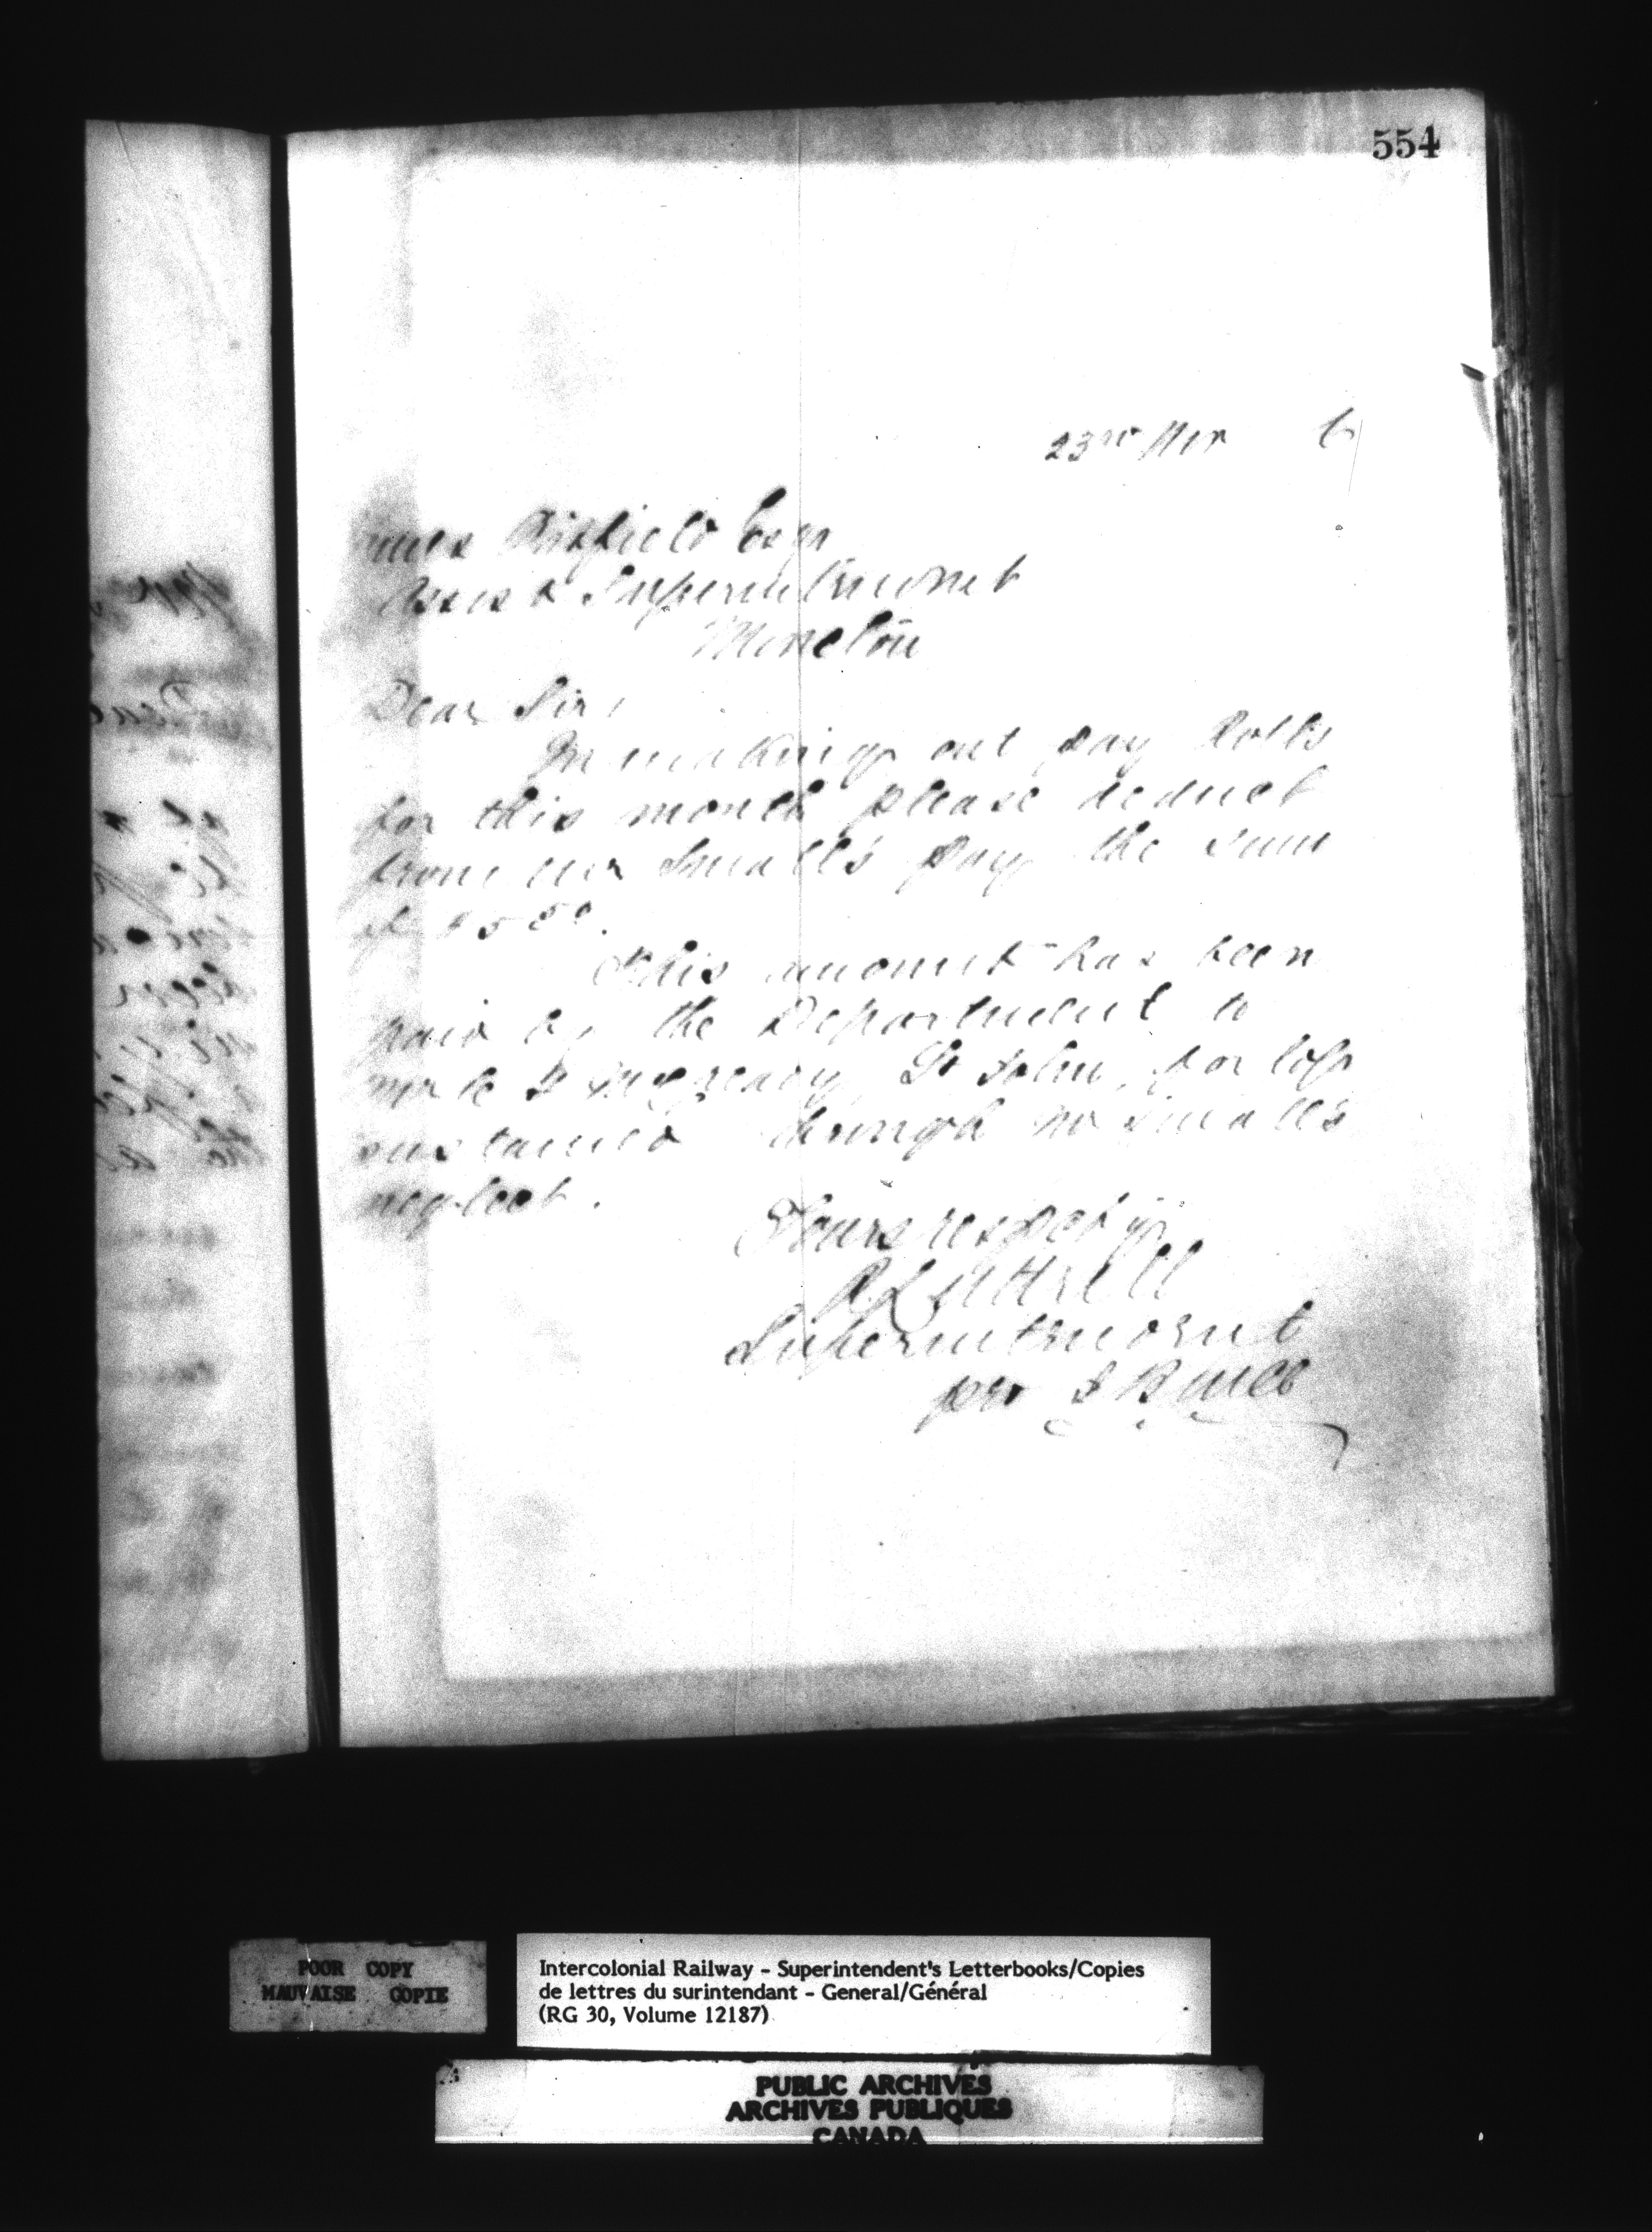 554
23rd Nov 6
Esqr
Assist Superintendent
Moncton
Dear Sir,
In making out pay Rolls
for this month please deduct
from Mr Small's pay the sum
of $5 50.
This amount has been
paid by the Department to
Mr St John, for loss
sustained through Mr Small's
neglect.
Yours respectfy
R Luttrell
Superintendent
per
POOR COPY
MAUVAISE COPIE
Intercolonial Railway - Superintendent's Letterbooks/Copies
de lettres du surintendant - General/Général
(RG 30, Volume 12187)
PUBLIC ARCHIVES
ARCHIVES PUBLIQUES
CANADA